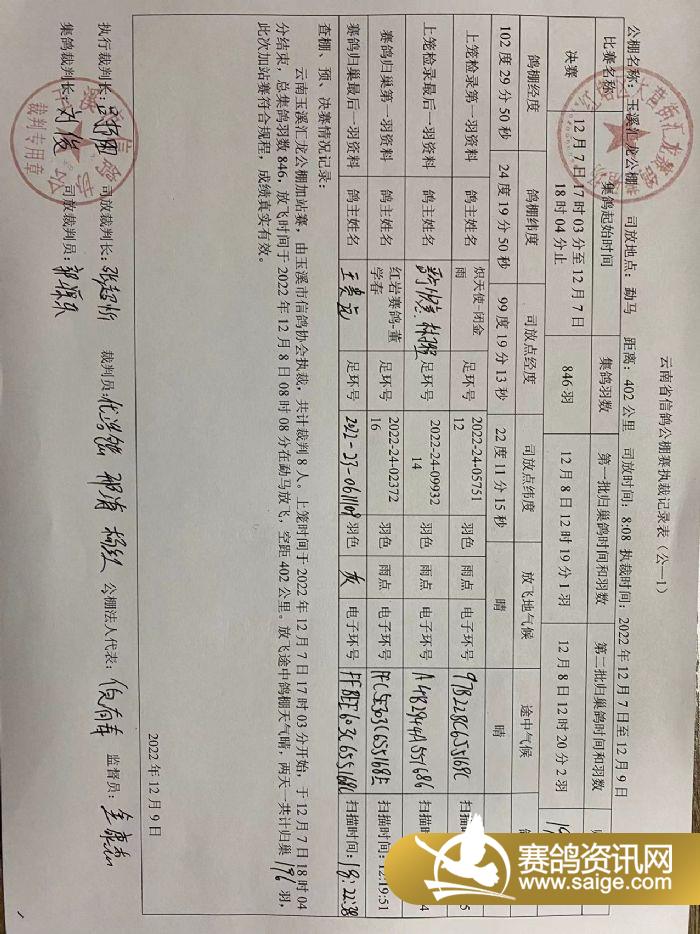 云南省信鸽公棚赛执裁记录表（公—1）
公棚名称：玉溪汇龙公棚 司放地点：勐马 距离：402 公里 司放时间：8:08 执裁时间：2022 年 12 月 7 日至 12 月 9 日
比赛名称 集鸽起始时间 集鸽羽数 第一批归巢鸽时间和羽数 第二批归巢鸽时间和羽数
决赛 12 月 7 日 17 时 03 分至 12 月 7 日 18 时 04 分止 846 羽 12 月 8 日 12 时 19 分 1 羽 12 月 8 日 12 时 20 分 2 羽
鸽棚经度 鸽棚纬度 司放点经度 司放点纬度 放飞地气候 途中气候
102 度 29 分 50 秒 24 度 19 分 50 秒 99 度 19 分 13 秒 22 度 11 分 15 秒 晴 晴
上笼检录第一羽资料 鸽主姓名 炽天使-闭金雨 足环号 2022-24-0575112 羽色 雨点 电子环号 97B228C655168C 扫描时间：
上笼检录最后一羽资料 鸽主姓名 足环号 2022-24-0993214 羽色 雨点 电子环号 扫描时间：
赛鸽归巢第一羽资料 鸽主姓名 红岩赛鸽-董学春 足环号 2022-24-0237216 羽色 雨点 电子环号 扫描时间：12:19:51
赛鸽归巢最后一羽资料 鸽主姓名 足环号 羽色 灰 电子环号 扫描时间：18:22:38
查棚、预、决赛情况记录：
云南玉溪汇龙公棚加站赛，由玉溪市信鸽协会执裁，共计裁判 8 人。上笼时间于 2022 年 12 月 7 日 17 时 03 分开始，于 12 月 7 日 18 时 04
分结束，总集鸽羽数 846，放飞时间于 2022 年 12 月 8 日 08 时 08 分在勐马放飞，空距 402 公里。放飞途中鸽棚天气晴，两天一共计归巢 196 羽，
此次加站赛符合规程，成绩真实有效。
2022 年 12 月 9 日
执行裁判长： 司放裁判长： 裁判员： 公棚法人代表： 监督员：
集鸽裁判长：刘俊 司放裁判员：
裁判专用章
赛鸽资讯网
www.saige.com